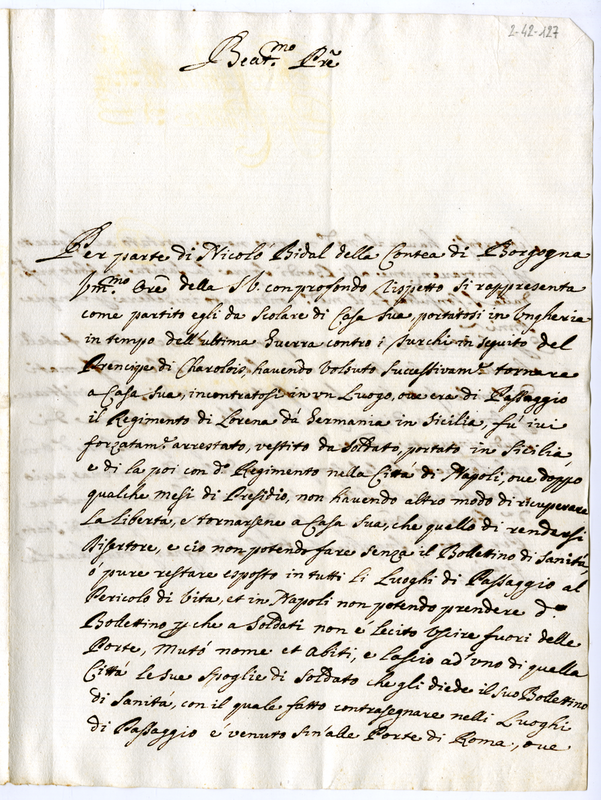 2-42-127
Beat.mo Pre
Per parte di Nicolò Bidal della Contea di Borgogna
Um.mo Ore della S.V. con profondo rispetto si rappresenta
come partito egli da Scolare di Casa Sua, portatosi in Vngheria
in tempo dell'ultima Guerra contro i Turchi in seguito del
Prencipe di Charolois, havendo voluto Successivam.e tornare
a Casa Sua, incontratosi in vn Luogo, ove era di Passaggio
il Regimento di Lorena dà Germania in Sicilia, fù ivi
forzatam.e arrestato, vestito da Soldato, portato in Sicilia,
e di la poi con d.o Regimento nella Città di Napoli, ove doppo
qualche mesi di Presidio, non havendo altro modo di ricuperare
La Libertà, e tornarsene a Casa Sua, che quello di rendersi
Disertore, e ciò non potendo fare senza il Bollettino di Sanità,
ò pure restare esposto in tutti li Luoghi di Passaggio al
Pericolo di Vita, et in Napoli non potendo prendere d.o
Bollettino p che a Soldati non è lecito Vscire fuori delle
Porte, mutò nome et Abiti, e lasciò ad vno di quella
Città le sue Spoglie di Soldato che gli diede il suo Bollettino
di Sanità, con il quale fatto contrasegnare nelli Luoghi
di Passaggio è venuto sin'alle Porte di Roma, ove